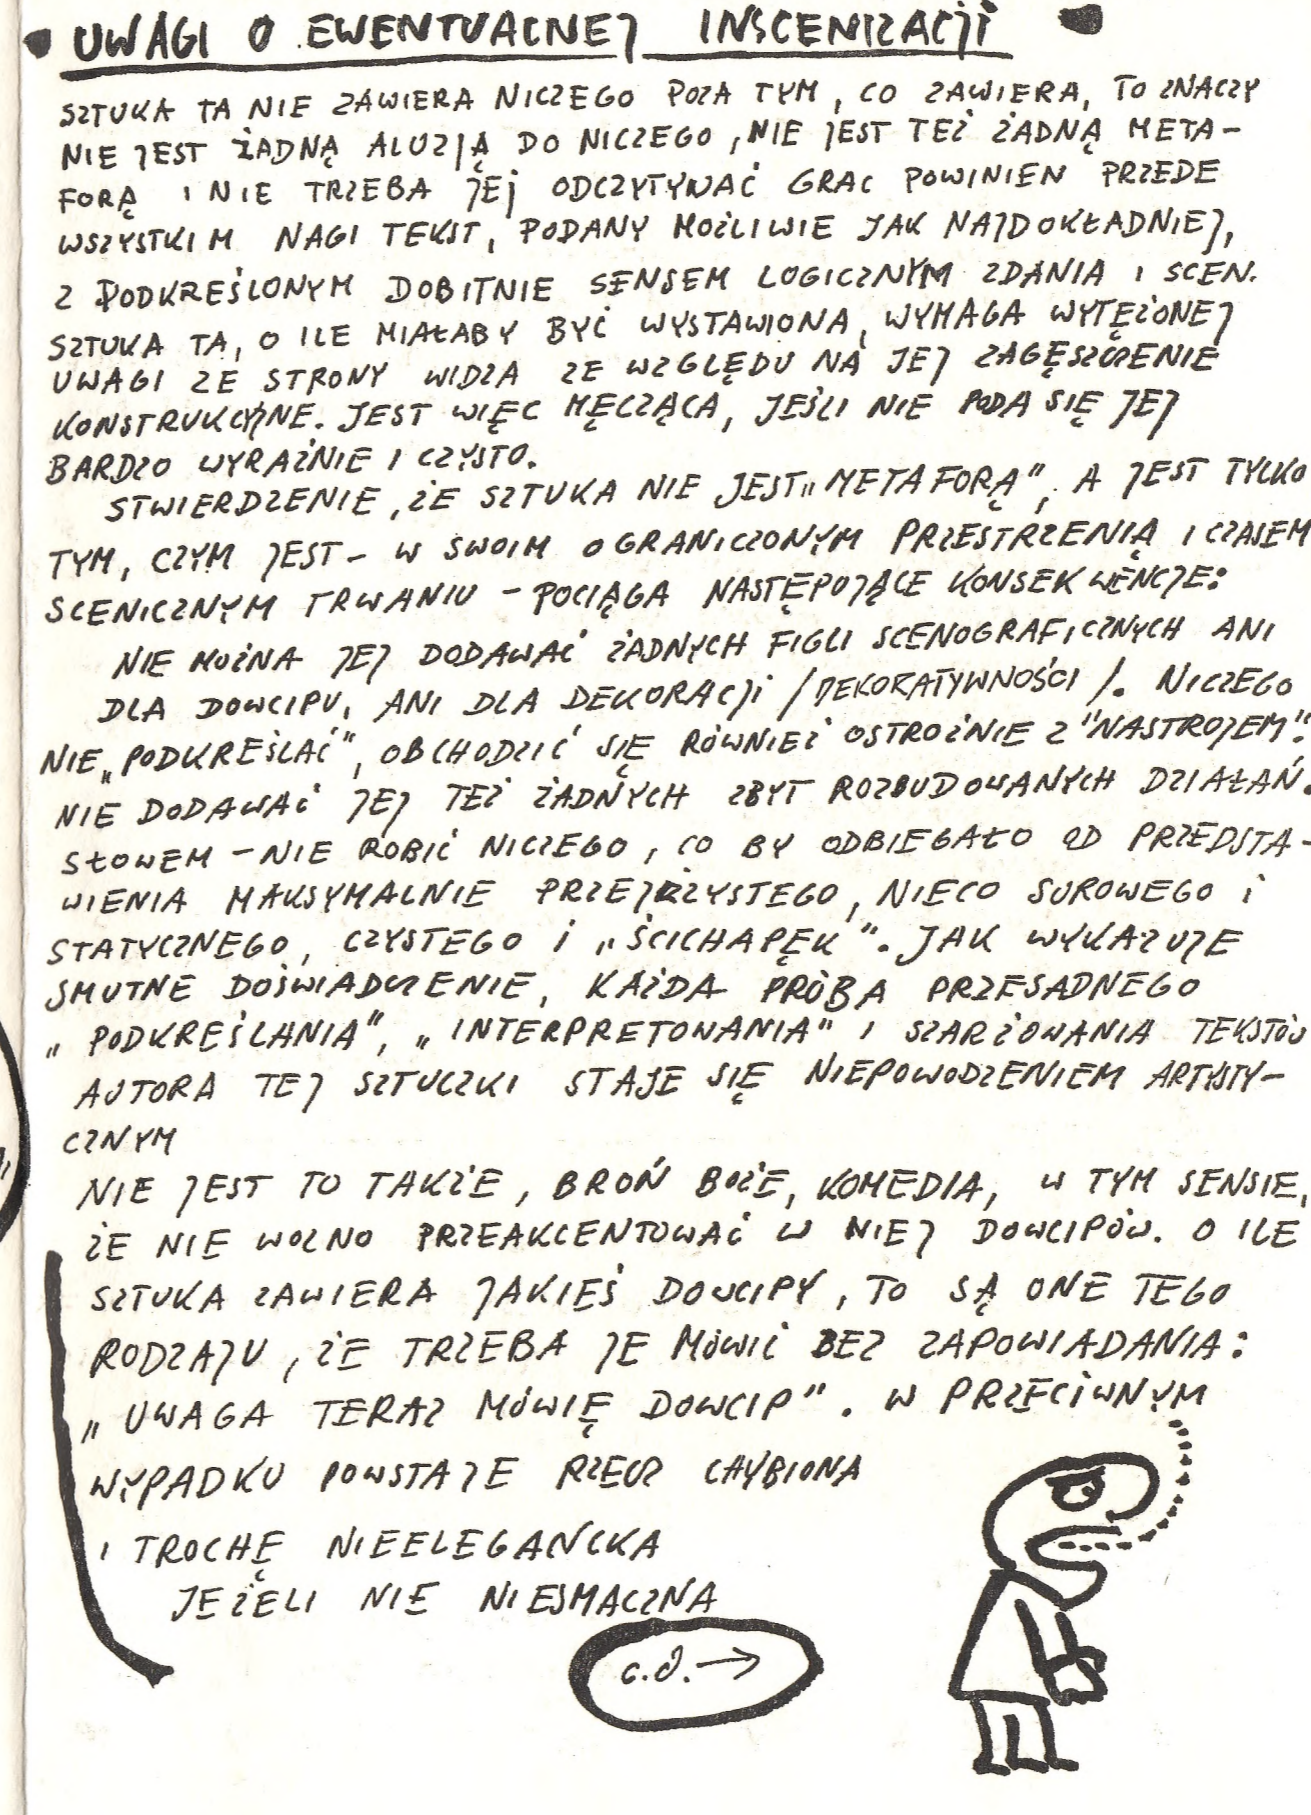 UWAGI O EWENTUALNEJ INSCENIZACJI
SZTUKA TA NIE ZAWIERA NICZEGO POZA TYM, CO ZAWIERA, TO ZNACZY
NIE JEST ŻADNĄ ALUZJĄ DO NICZEGO, NIE JEST TEŻ ŻADNĄ META-
FORĄ I NIE TRZEBA JEJ ODCZYTYWAĆ GRAC POWINIEN PRZEDE
WSZYSTKIM NAGI TEKST, PODANY MOŻLIWIE JAK NAJDOKŁADNIEJ,
Z PODKREŚLONYM DOBITNIE SENSEM LOGICZNYM ZDANIA I SCEN.
SZTUKA TA, O ILE MIAŁABY BYĆ WYSTAWIONA, WYMAGA WYTĘŻONEJ
UWAGI ZE STRONY WIDZA ZE WZGLĘDU NA JEJ ZAGĘSZCZENIE
KONSTRUKCYJNE. JEST WIĘC MĘCZĄCA, JEŚLI NIE PODA SIĘ JEJ
BARDZO WYRAŹNIE I CZYSTO.
STWIERDZENIE, ŻE SZTUKA NIE JEST „METAFORĄ", A JEST TYLKO
TYM, CZYM JEST - W SWOIM OGRANICZONYM PRZESTRZENIĄ I CZASEM
SCENICZNYM TRWANIU - POCIĄGA NASTĘPUJĄCE KONSEKWENCJE:
NIE MOŻNA JEJ DODAWAĆ ŻADNYCH FIGLI SCENOGRAFICZNYCH ANI
DLA DOWCIPU, ANI DLA DEKORACJI /DEKORATYWNOŚCI/. NICZEGO
NIE „PODKREŚLAĆ", OBCHODZIĆ SIĘ RÓWNIEŻ OSTROŻNIE Z "NASTROJEM".
NIE DODAWAĆ JEJ TEŻ ŻADNYCH ZBYT ROZBUDOWANYCH DZIAŁAŃ.
SŁOWEM - NIE ROBIĆ NICZEGO, CO BY ODBIEGAŁO OD PRZEDSTA-
WIENIA MAKSYMALNIE PRZEJRZYSTEGO, NIECO SUROWEGO I
STATYCZNEGO, CZYSTEGO I „ŚCICHAPĘK". JAK WYKAZUJE
SMUTNE DOŚWIADCZENIE, KAŻDA PRÓBA PRZESADNEGO
„PODKREŚLANIA", „INTERPRETOWANIA" I SZARŻOWANIA TEKSTÓW
AUTORA TEJ SZTUCZKI STAJE SIĘ NIEPOWODZENIEM ARTYSTY-
CZNYM
NIE JEST TO TAKŻE, BROŃ BOŻE, KOMEDIA, W TYM SENSIE,
ŻE NIE WOLNO PRZEAKCENTOWAĆ W NIEJ DOWCIPÓW. O ILE
SZTUKA ZAWIERA JAKIEŚ DOWCIPY, TO SĄ ONE TEGO
RODZAJU, ŻE TRZEBA JE MÓWIĆ BEZ ZAPOWIADANIA:
„UWAGA TERAZ MÓWIĘ DOWCIP". W PRZECIWNYM
WYPADKU POWSTAJE RZECZ CHYBIONA
I TROCHĘ NIEELEGANCKA
JEŻELI NIE NIESMACZNA
c.d. →